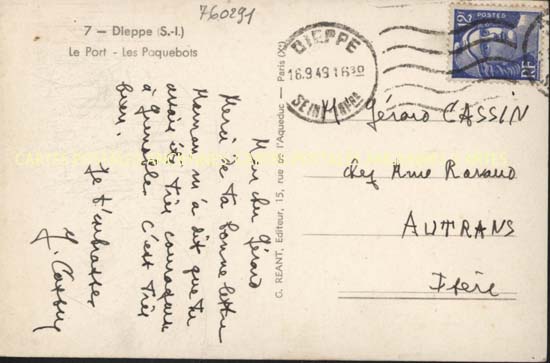 760291
7 — Dieppe (S.-I.)
Le Port - Les Paquebots
Mon cher Gérard
Merci de ta bonne lettre
Maman m'a dit que tu
avais été très courageux
à Grenoble. C'est très
bien.
Je t'embrasse
G. REANT, Editeur, 15, rue de l'Aqueduc — Paris (X)
DIEPPE
16.9.49 16 30
SEINE INFRE
12F
POSTES
RF
M. Gérard CASSIN
chez Mme Ravaud
AUTRANS
Isère